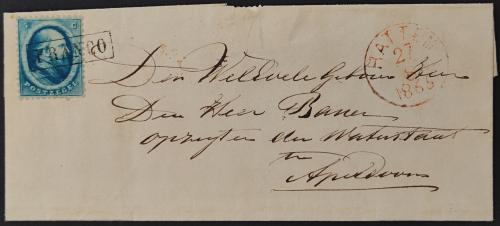 FRANCO
POSTZEGEL
HATTEM
27
1865
Den WelEdele Geboren Heer
Den Heer Bauer
opzigter der Waterstaat
te
Apeldoorn